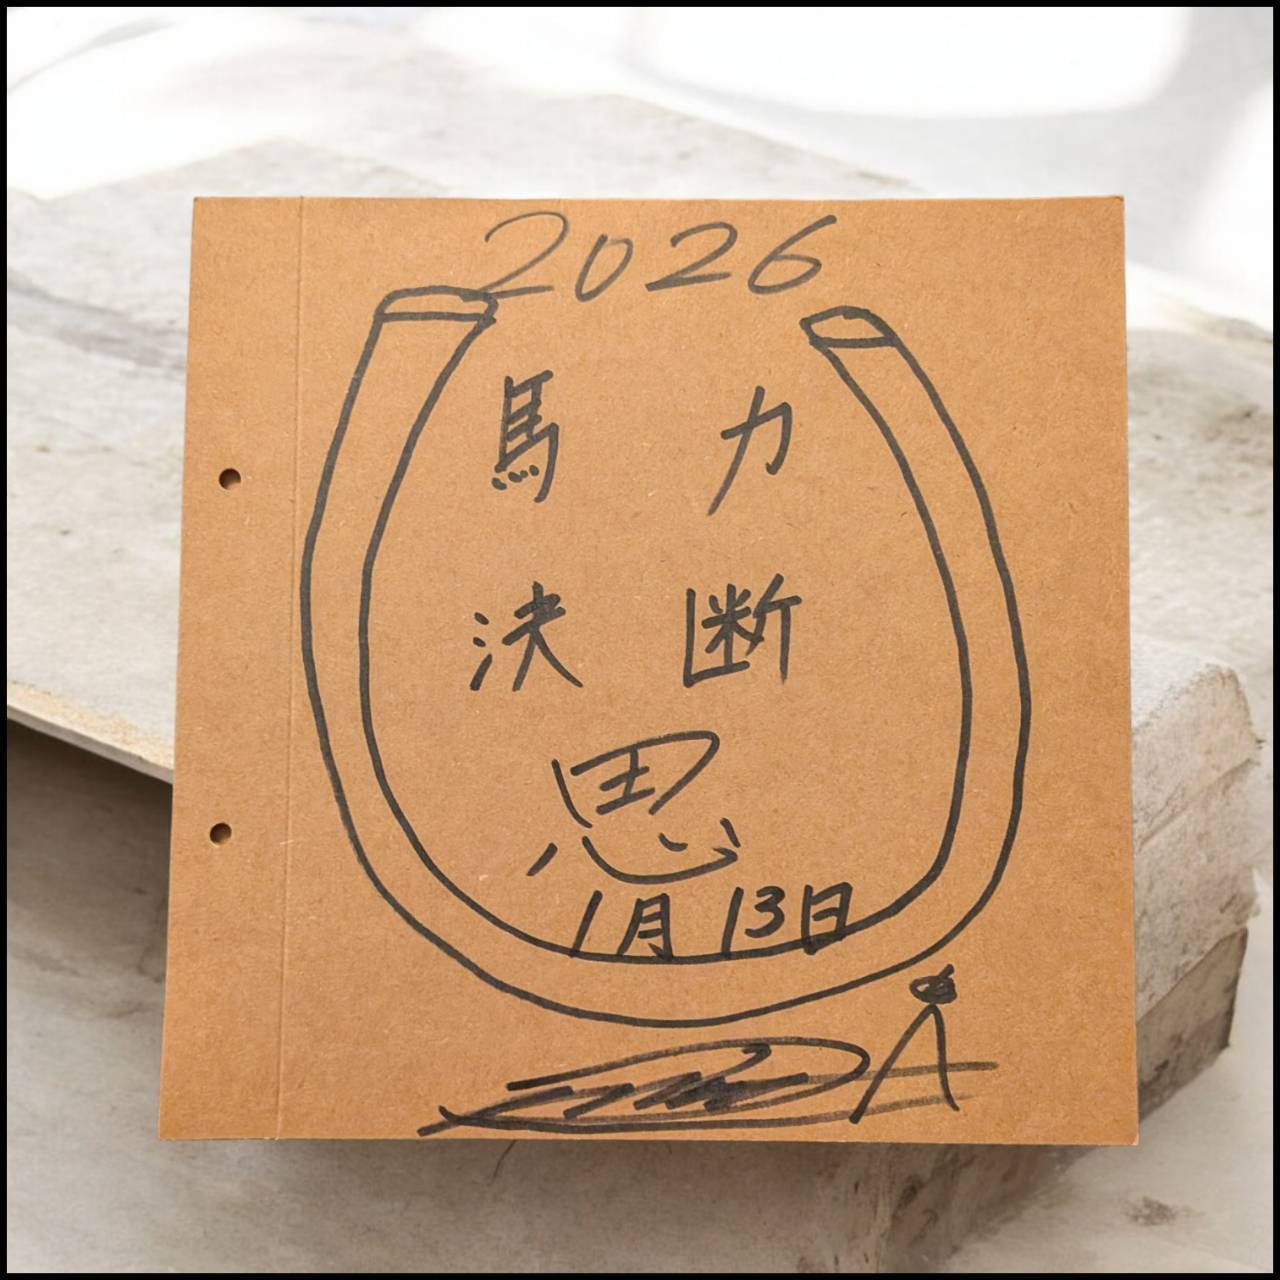 2026
馬力
決断
思
1月13日